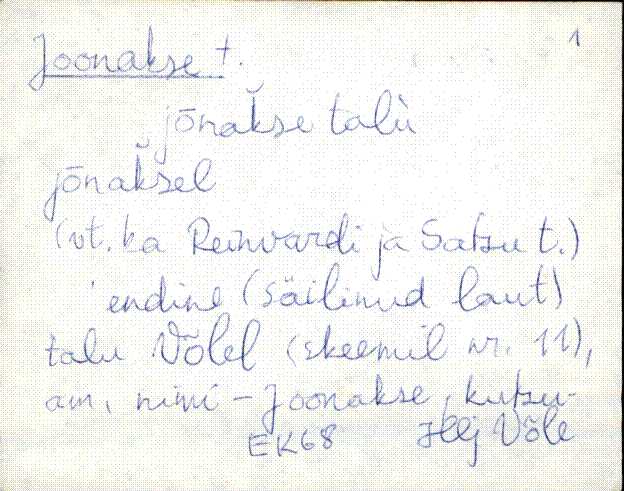 1
Joonakse t.
jōnak̆se talù
jōnak̆sel
(vt. ka Reinvardi ja Satsu t.)
endine (säilinud laut)
talu Võlel (skeemil nr. 11),
am. nimi - Joonakse, kutsu-
EK68 Hlj Võle